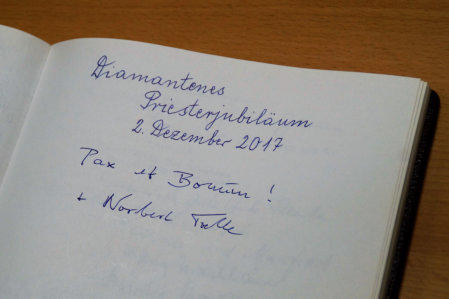 Diamantenes
Priesterjubiläum
2. Dezember 2017
Pax et Bonum !
+ Norbert Trelle